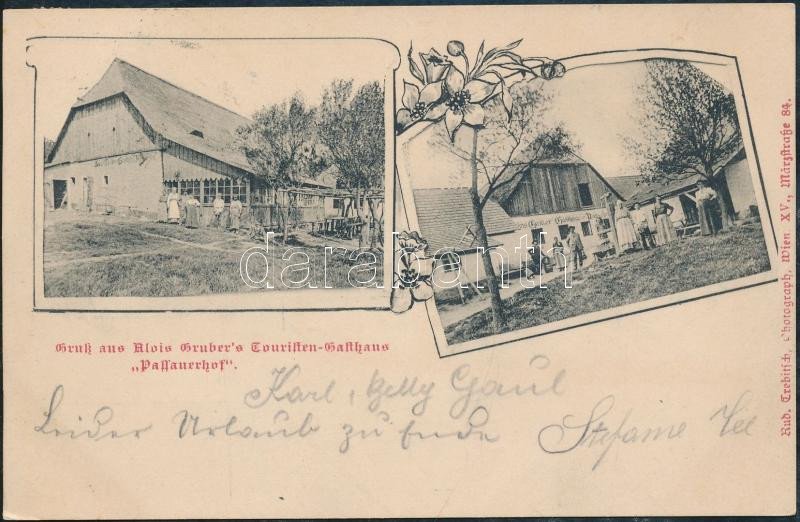 Gruß aus Alois Gruber's Touristen-Gasthaus
„Passauerhof".
Karl, Gaul
Leider Urlaub zu Ende
Stefanie
Rud. Trebitsch, Photograph, Wien XV., Märzstraße 84.
darabanth